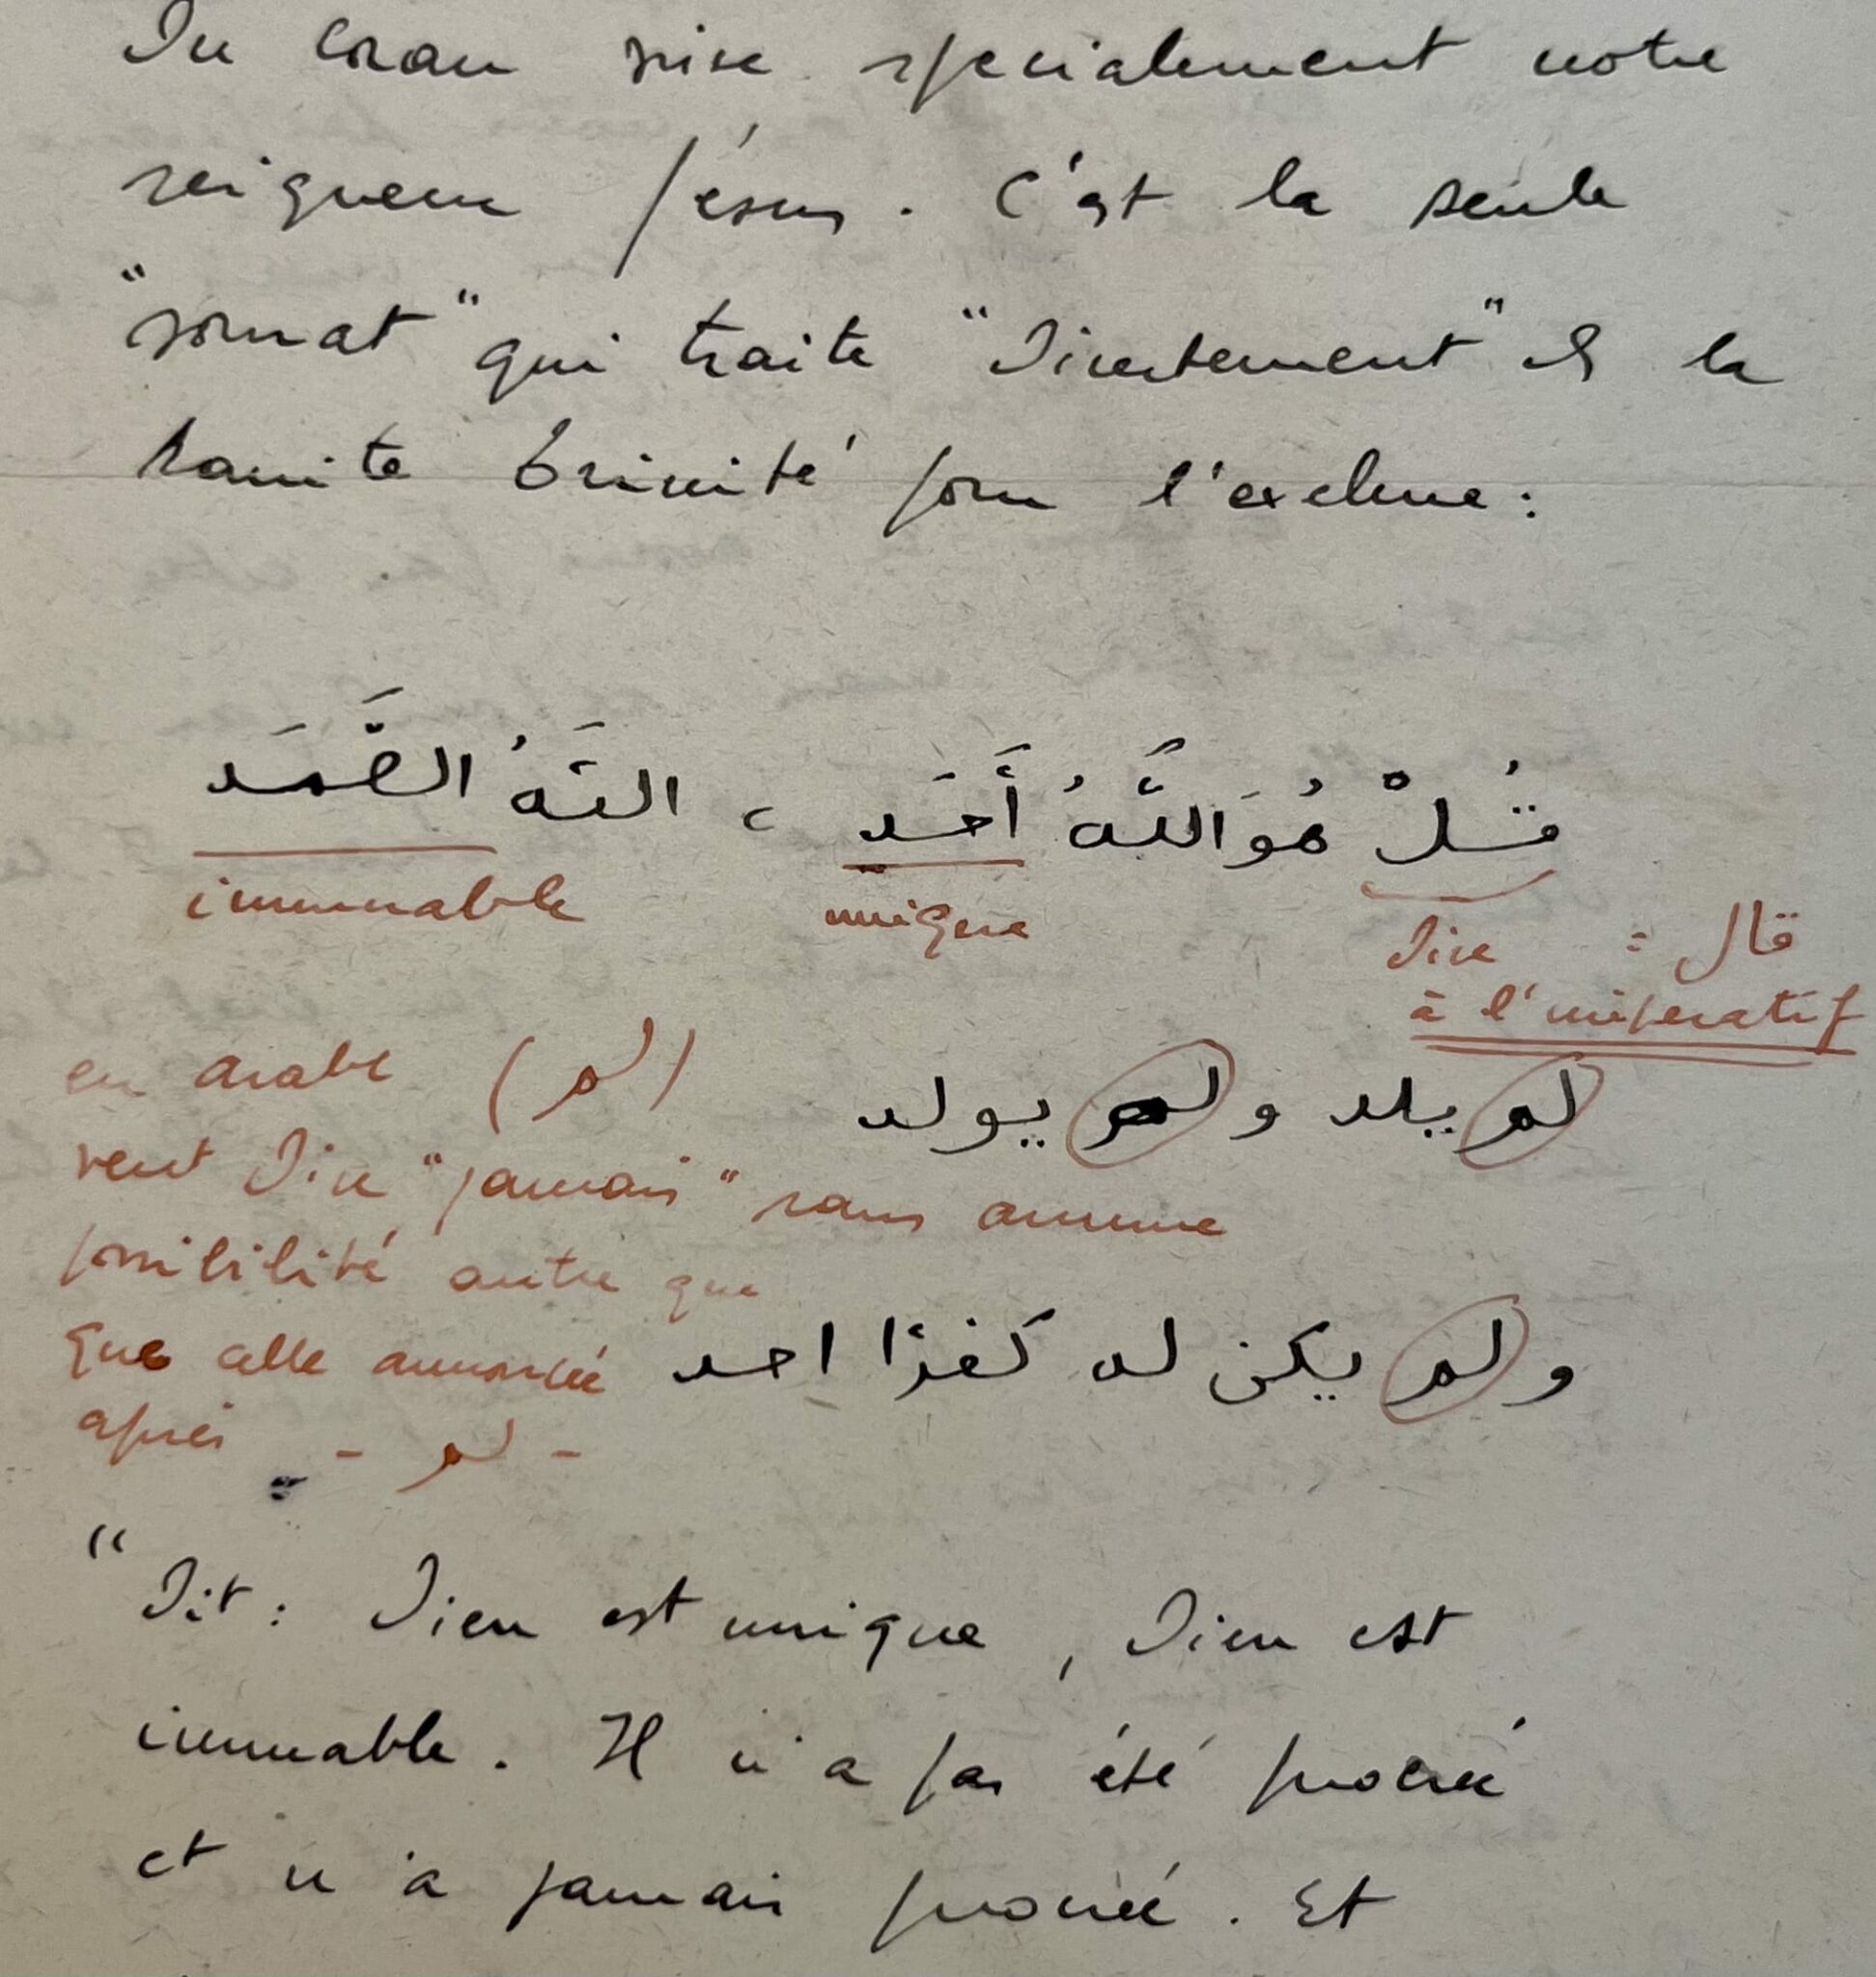 Du coran vise specialement notre
seigneur Jésus. C'est la seule
"sourat" qui traite "directement" de la
sainte trinité pour l'exclure :
قُلْ هُوَ اللَّهُ أَحَد ، اللَّهُ الصَّمَد
immuable unique
dire : قال
à l'imperatif
لم يلد ولم يولد
en arabe (لم)
veut dire "jamais" sans aucune
possibilité autre que
que celle annoncée
ولم يكن له كفؤًا احد
après - لم -
"Dit : Dieu est unique, Dieu est
immuable. Il n'a pas été procréé
et n'a jamais procréé. Et